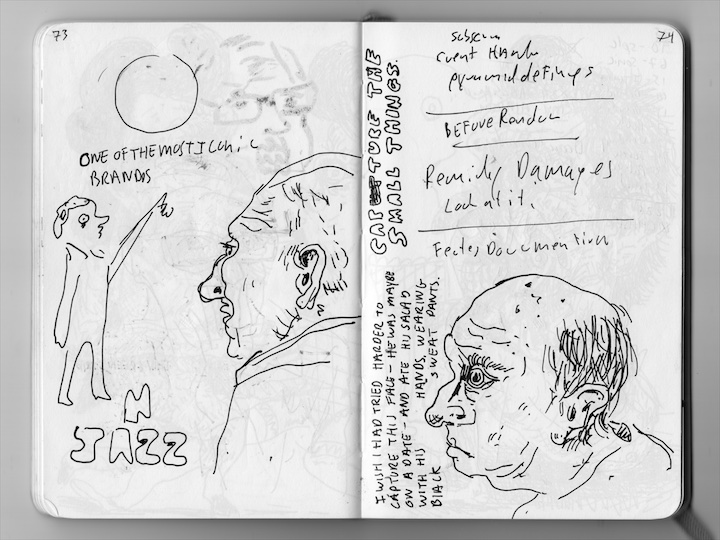 73
ONE OF THE MOST ICONIC
BRANDS
N
JAZZ
CAPTURE THE
SMALL THINGS.
I WISH I HAD TRIED HARDER TO
CAPTURE THIS FACE – HE WAS MAYBE
ON A DATE – AND ATE HIS SALAD
WITH HIS HANDS, WEARING
BLACK SWEAT PANTS.
74
event
pyramid defines
BEFORE Random
Damages
Look at it.